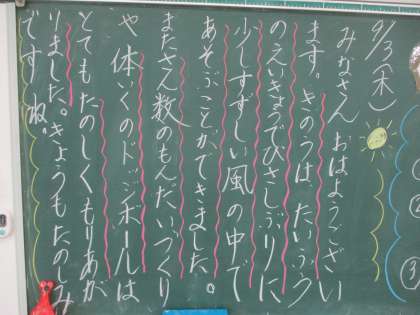 9/3(木)
みなさん おはようござい
ます。きのうは、たいふう
のえいきょうでひさしぶりに
少しすずしい風の中で
あそぶことができました。
またさん数のもんだいづくり
や体いくのドッジボールは
とてもたのしくもりあが
りました。きょうもたのしみ
ですね。
①
②
③